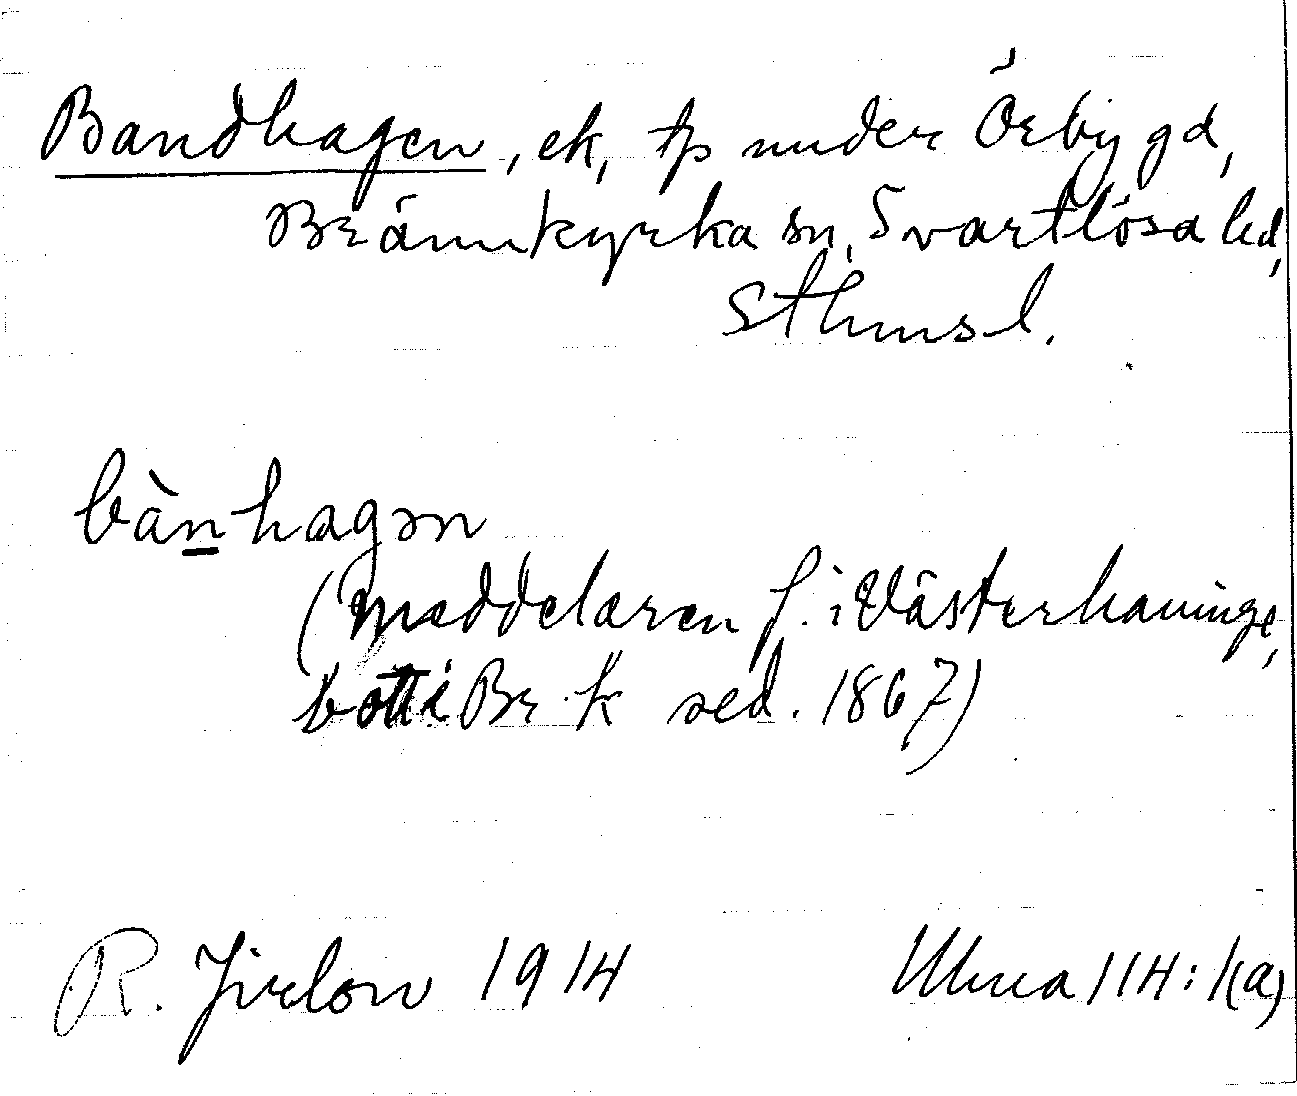 Bandhagen, ek, tp under Örby gd,
Brännkyrka sn, Svartlösa hd,
Sthmsl.
bànhagən
(Meddelaren f. i Västerhaninge,
bott i Br.k sed. 1867)
R. Jirlow 1914
Ulma 114:1(a)